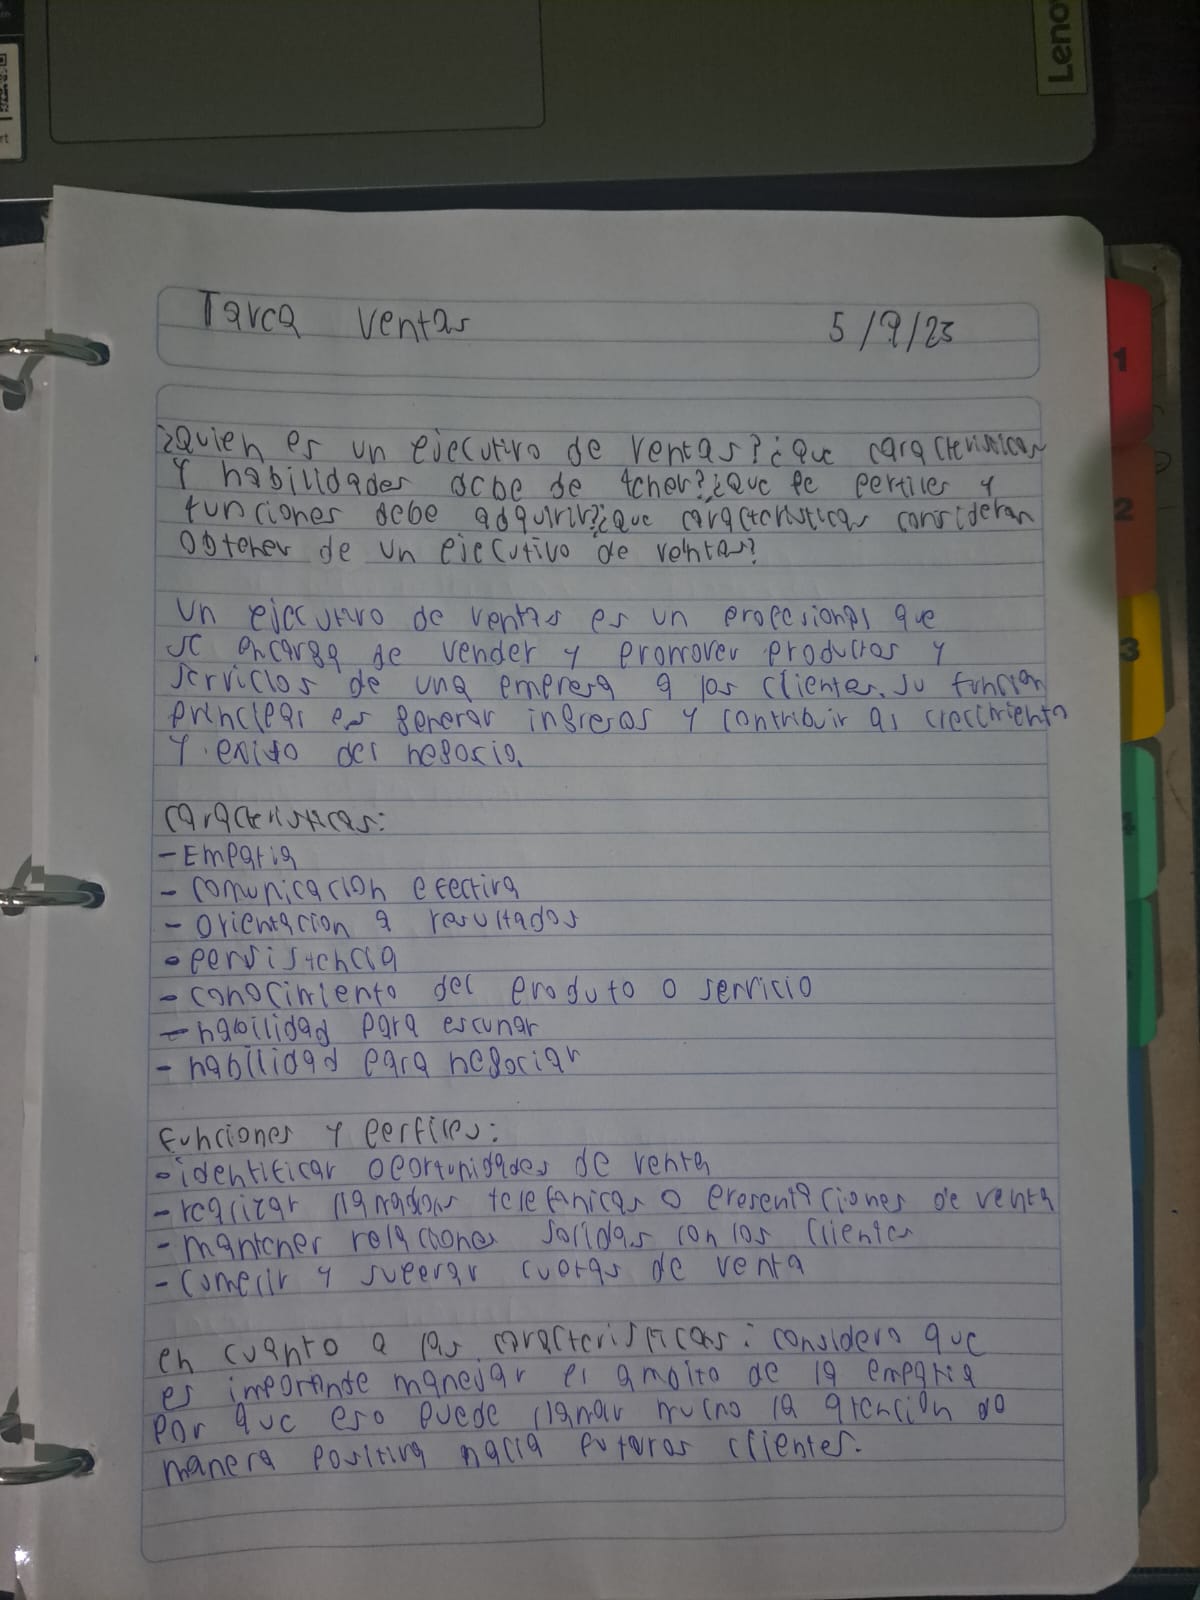 Leno
rt
1
2
3
4
Tarea ventas 5/9/23
¿Quien es un ejecutivo de ventas? ¿Que caracteristicas
y habilidades debe de tener? ¿Que pe perfiles y
funciones debe adquirir? ¿Que caracteristicas consideran
obtener de un ejecutivo de ventas?
Un ejecutivo de ventas es un profesional que
se encarga de vender y promover productos y
servicios de una empresa a los clientes. su funcion
principal es generar ingresos y contribuir al crecimiento
y exito del negocio.
caracteristicas:
- Empatia
- comunicacion efectiva
- orientacion a resultados
- persistencia
- conocimiento del produto o servicio
- habilidad para escuhar
- habilidad para negociar
funciones y perfiles:
- identificar oportunidades de venta
- realizar llamadas telefonicas o presentaciones de venta
- mantener relaciones solidas con los clientes
- cumplir y superar cuotas de venta
en cuanto a las caracteristicas: considero que
es importante manejar el ambito de la empatia
por que eso puede llamar mucho la atencion de
manera positiva hacia futuros clientes.